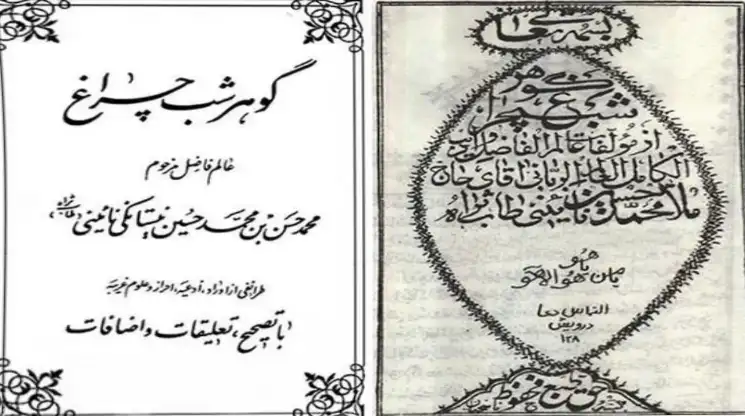 گوهر شب چراغ
عالم فاضل مرحوم
محمد حسن بن محمد حسین نیستانکی نائینی (طاب ثراه)
طرائفی از اوراد، ادعیه، احراز و علوم غریبه
با تصحیح، تعلیقات و اضافات
بسمه تعالی
گوهر
شب چراغ
از مؤلفات عالم الفاضل و
الکامل العالم الربانی آقای حاج
ملا محمد حسن نائینی طاب ثراه
یا هو
یا من هو الا هو
التماس دعا
درویش
۱۲۸
حق طبع محفوظ